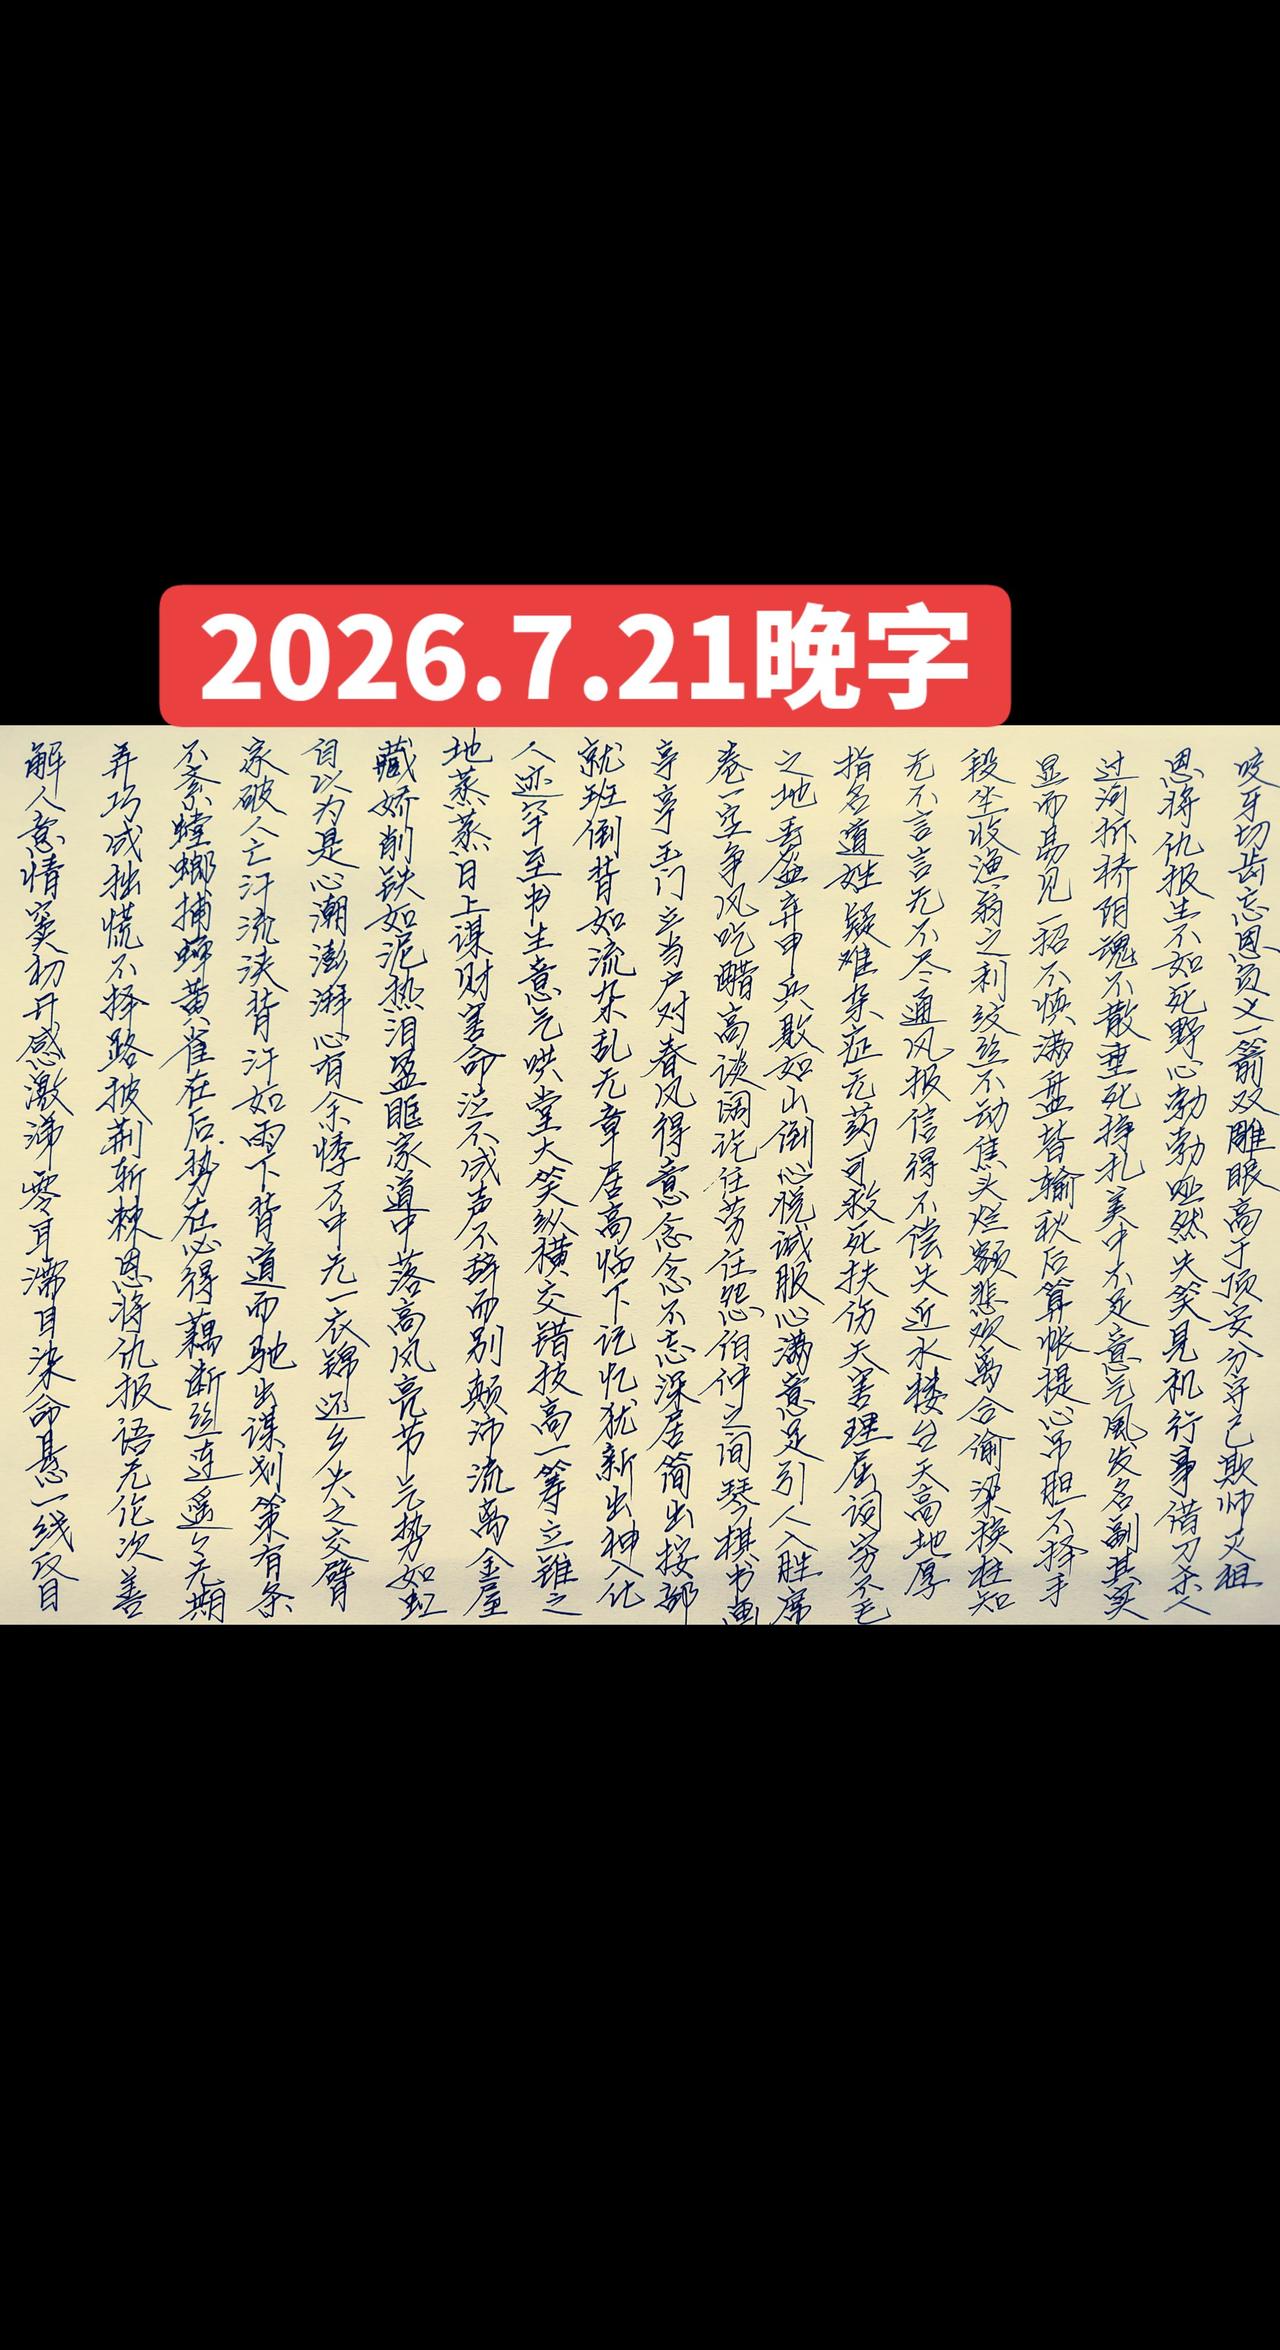 2026.7.21晚字
咬牙切齿忘恩负义一箭双雕眼高于顶安分守己欺师灭祖
恩将仇报生不如死野心勃勃哑然失笑见机行事借刀杀人
过河拆桥阴魂不散垂死挣扎美中不足意气風发名副其实
显而易见一招不慎满盘皆输秋后算帐提心吊胆不择手
段坐收渔翁之利纹丝不动焦头烂额悲欢离合偷梁换柱知
无不言言无不尽通风报信得不偿失近水楼台天高地厚
指名道姓疑难杂症无药可救死扶伤天害理屈词穷不毛
之地丢盔弃甲兵败如山倒心悦诚服心满意足引人入胜席
卷一空争风吃醋高谈阔论任劳任怨伯仲之间琴棋书画
亭亭玉门立当户对春风得意念念不忘深居简出按部
就班倒背如流杂乱无章居高临下记忆犹新出神入化
人迹罕至书生意气哄堂大笑纵横交错技高一筹立锥之
地蒸蒸日上谋财害命泣不成声不辞而别颠沛流离金屋
藏娇削铁如泥热泪盈眶家道中落高风亮节气势如虹
自以为是心潮澎湃心有余悸万中无一衣锦还乡失之交臂
家破人亡汗流浃背汗如雨下背道而驰出谋划策有条
不紊螳螂捕蝉黄雀在后势在必得藕断丝连遥遥无期
弄巧成拙慌不择路披荆斩棘恩将仇报语无伦次善
解人意情窦初开感激涕零耳濡目染命悬一线反目